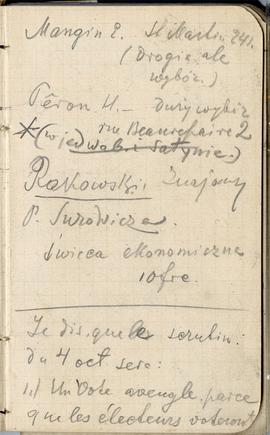 Mangin E. St Martin 241.
(Drogie, ale
wybór.)
Péron H. – Duży wybór
rue Beaurepaire 2
(w jedwabiu Satynie.)
Rakowski, Znajomy
P. Surowicza
świeca ekonomiczna
10 frc.
Je dis, que le scrutin
du 4 oct. sera:
1.) Un Vote aveugle, parce
que les électeurs voteront